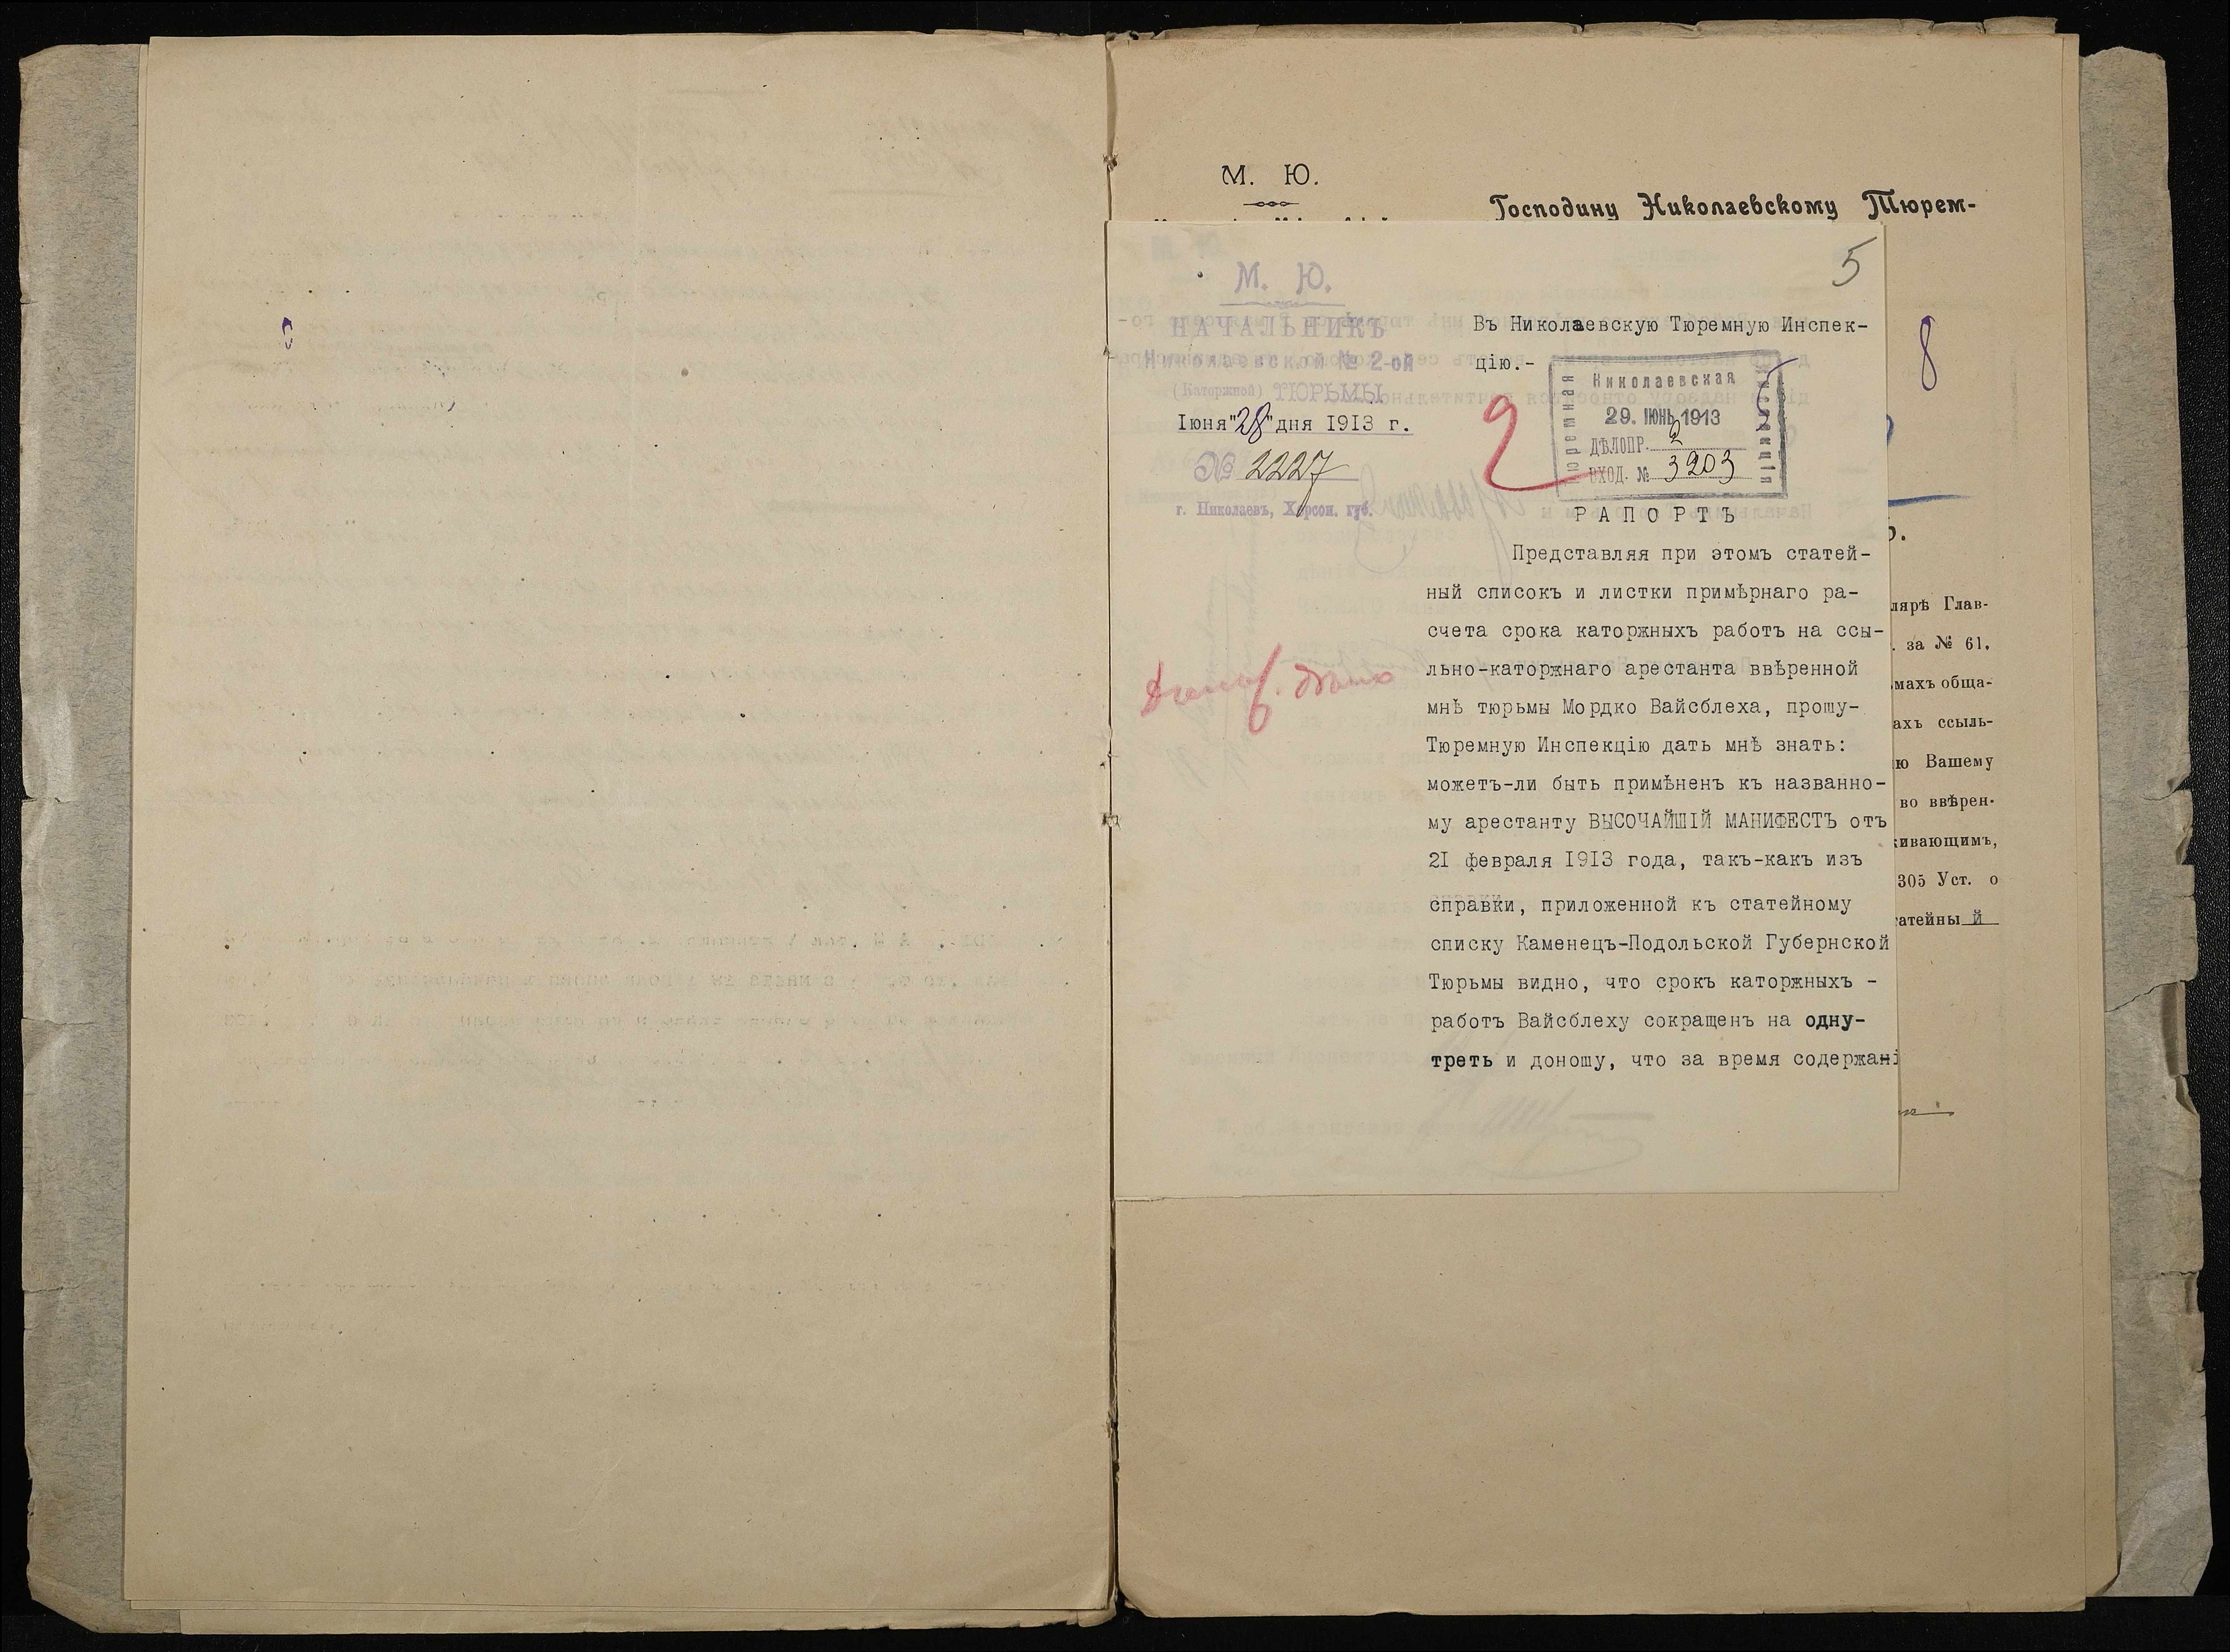 М. Ю.
Господину Николаевскому Тюрем-
5
М. Ю.
НАЧАЛЬНИКЪ
Николаевской № 2-ой
(Каторжной) ТЮРЬМЫ
Іюня "28" дня 1913 г.
№ 2227
г. Николаевъ, Херсон. губ.
Въ Николаевскую Тюремную Инспек-
цію.-
Николаевская
Тюремная
29. ІЮНЬ 1913
ДѢЛОПР. 2
ВХОД. № 3203
2
8
РАПОРТЪ
Представляя при этомъ статей-
ный списокъ и листки примѣрнаго ра-
счета срока каторжныхъ работъ на ссы-
льно-каторжнаго арестанта ввѣренной
мнѣ тюрьмы Мордко Вайсблеха, прошу-
Тюремную Инспекцію дать мнѣ знать:
можетъ-ли быть примѣненъ къ названно-
му арестанту ВЫСОЧАЙШІЙ МАНИФЕСТЪ отъ
21 февраля 1913 года, такъ-какъ изъ
справки, приложенной къ статейному
списку Каменецъ-Подольской Губернской
Тюрьмы видно, что срокъ каторжныхъ -
работъ Вайсблеху сокращенъ на одну-
треть и доношу, что за время содержані
лярѣ Глав-
. за № 61,
махъ обща-
ахъ ссыль-
ю Вашему
во ввѣрен-
живающимъ,
305 Уст. о
татейный